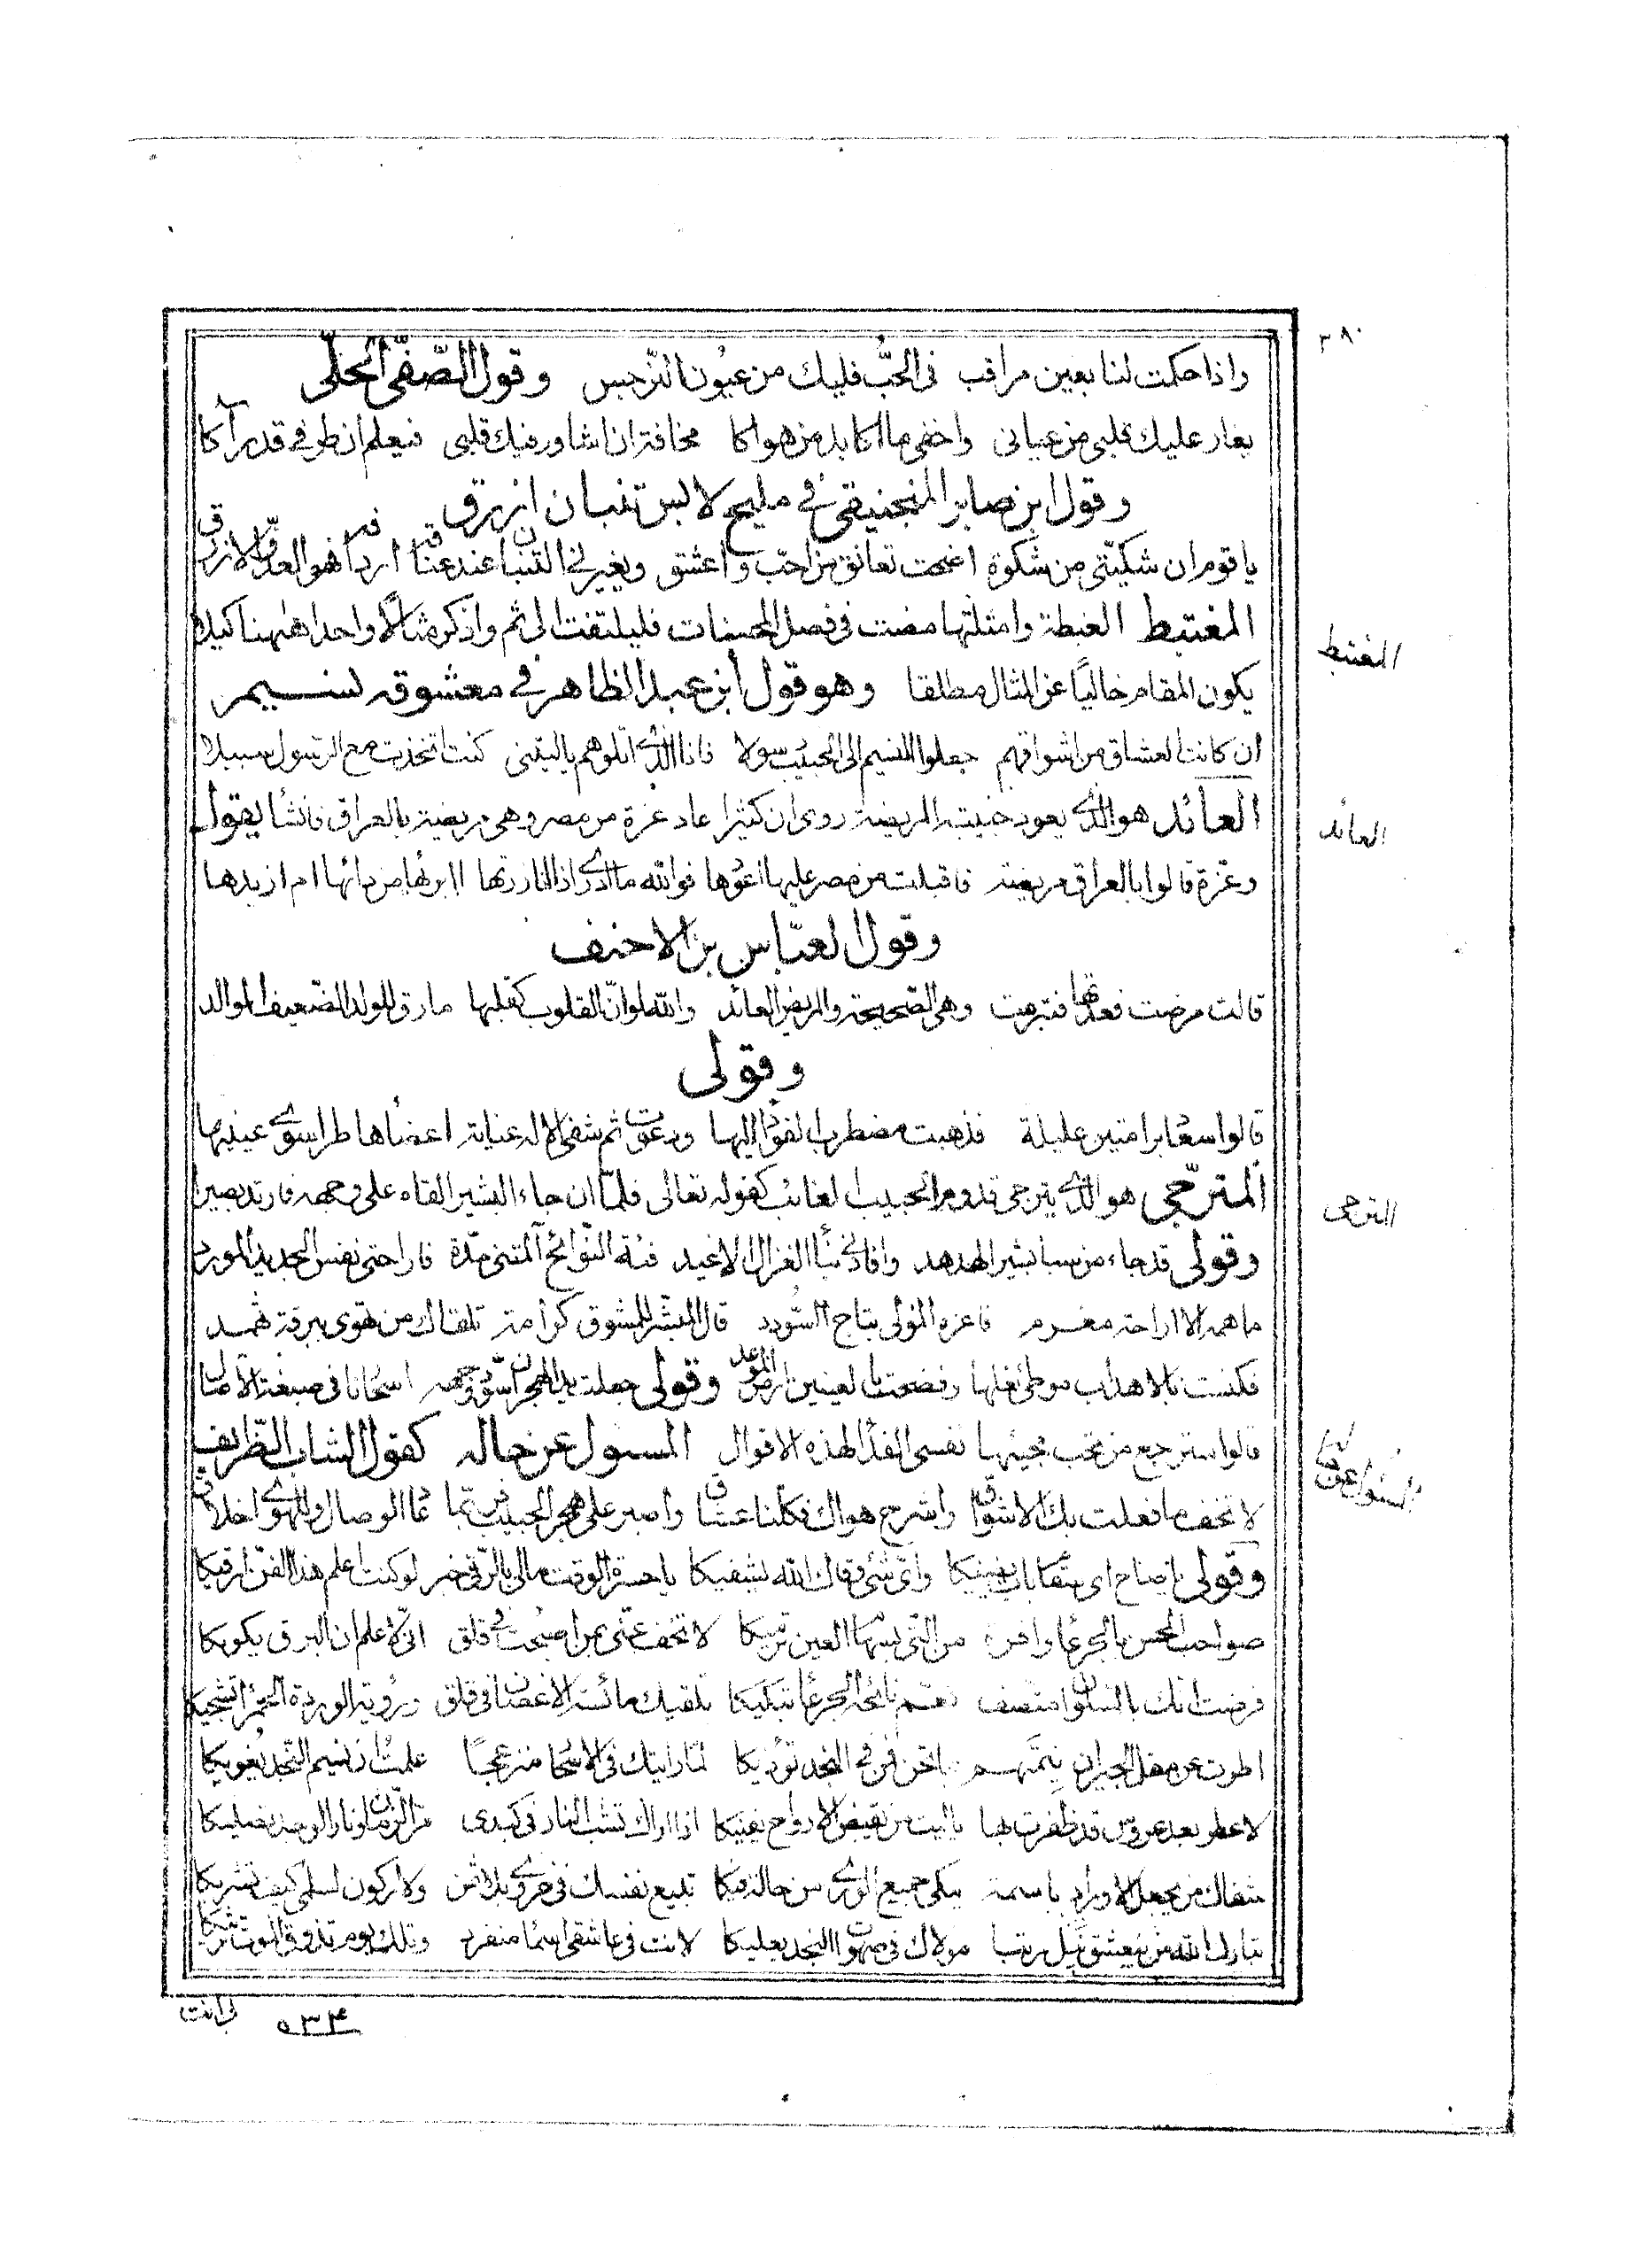 ٣٨٠
واذا حكمت لنا بعين مراقب في الحبّ فليك من عيون النّرجس وقول الصّفيّ الحلّي
يغار عليك قلبي من عياني واخفي ما اكابد من هواكا مخافة ان اشاور فيك قلبي فيعلم ان طرفي قد رآكا
وقول ابن صابر المنجنيقي في مليح لابس تنبان ازرق
يا قوم ان شكيّتي من شكوة اضحت تعانق من احبّ واعشق ويغيرني التنبان عند عناقه اردافه فهو العدوّ الازرق
المغتبط الغبطة وامثلتها مضت في فصل المحسنات فليلتفت الى ثم واذكر مثالا واحدا ههنا كيلا
المغتبط
يكون المقام خاليًا عن المثال مطلقا وهو قول ابن عبد الظاهر في معشوقه نسيم
ان كانت العشاق من اشواقهم جعلوا النسيم الى الحبيب رسولا فانا الذي اتلوهم يا ليتني كنت اتخذت مع الرسول سبيلا
العائد هو الذي يعود حبيبه المريضة روى ان كثيرا عاد عزة من مصر وهي مريضة بالعراق فانشا يقول
العائد
وعزة قالوا بالعراق مريضة فاقبلت من مصر عليها اعودها فوالله ما ادري اذا انا زرتها اابرئها من دائها ام ازيدها
وقول العبّاس بن الاحنف
قالت مرضت فعدتها فتبرمت وهي الصّحيحة والمريض العائد والله لو انّ القلوب كقلبها ما رق للولد الضّعيف الوالد
وقولي
قالوا سعاد برامتين عليلة فذهبت مضطرب الفؤاد اليها ودعوت ثم شفى الاله عناية اعضاها طرا سوى عينيها
المترجّي هو الذي يترجى قدوم الحبيب الغائب كقوله تعالى فلمّا ان جاء البشير القاه على وجهه فارتد بصيرا
المترجى
وقولي قد جاء من سبا بشير الهدهد وافاد نبأ الغزال الاغيد فئة النّوائح آلمتني مدّة فاراحتي نفس الجديد المورد
ما همه الا اراحة مغرم فاعزه المولى بتاج السّودد قال المبشّر للمشوق كرامة تلقاك من تهوى ببرقة ثهمد
فكنست بالاهداب موطئ نعلها ونضحت بالعينين ارض الموعد وقولي جعلت يد الهجران اسود وجهه اسحانا في صبغة الآصال
قالوا سترجع من تحب مجيئها نفسي الفداء لهذه الاقوال المسئول عن حاله كقول الشاب الظّريف
المسئول عن حاله
لا تخف ما فعلت بك الاشواق واشرح هواك فكلنا عشاق واصبر على هجر الحبيب فربما عاد الوصال وللهوى اخلاق
وقولي يا صاح اي سقام بات يضنيكا وايّ شيء وقاك الله يشفيكا يا حسرة الوقت مالي بالرّقى خبر لو كنت اعلم هذا الفن ارقيكا
صواحب الحسن بالجرعاء وافرة من التي بسهام العين ترميكا لا تخف عنّي بمن اصبحت في قلق انّي لاعلم ان البرق يبكيكا
فرضت انك بالسلوان متصف نعم نائحة الجرعاء تبكيكا تلقيك مائسة الاغصان في قلق ورؤية الوردة الحمراء تشجيكا
اطوت عن مقل الجيران نيتهم يا نحن في ريح النجد تؤذيكا لما رايتك في الاسحار منزعجًا علمت ان نسيم النّجد يغويكا
لا عطر بعد عروس قد ظفرت بها يا ليت من يقبض الارواح يفنيكا اذا اراك تشب النار في كبدي
شفاك من يجعل الاوراد باسمة يبكي جميع الورى من حالة فيكا تبيع نفسك في خسرى بلا ثمن ولا ركون لسلمى كيف تشريكا
تبارك الله من يعشق ينل رتبا مولاك في صهوات النجد يعليكا لانت في عاشقي اسماء منفرد وتلك يوم تذوق الموت ترثيكا
لي انت
٥٣٤